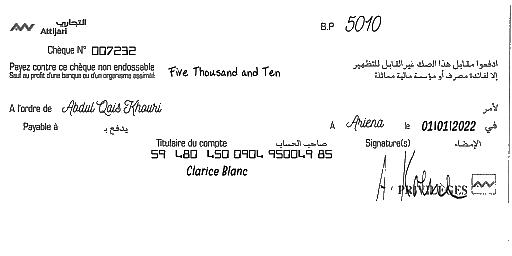 التجاري
Attijari
B.P 5010
Chèque N° 007232
Payez contre ce chèque non endossable
Sauf au profit d'une banque ou d'un organisme assimilé
Five Thousand and Ten
ادفعوا مقابل هذا الصك غير القابل للتظهير
إلا لفائدة مصرف أو مؤسسة مالية مماثلة
A l'ordre de Abdul Qais Khouri لأمر
Payable à يدفع بـ A Ariena le 01/01/2022 في
Titulaire du compte صاحب الحساب Signature(s) الإمضاء
59 480 450 0904 950049 85
Clarice Blanc
PRIVILEGES